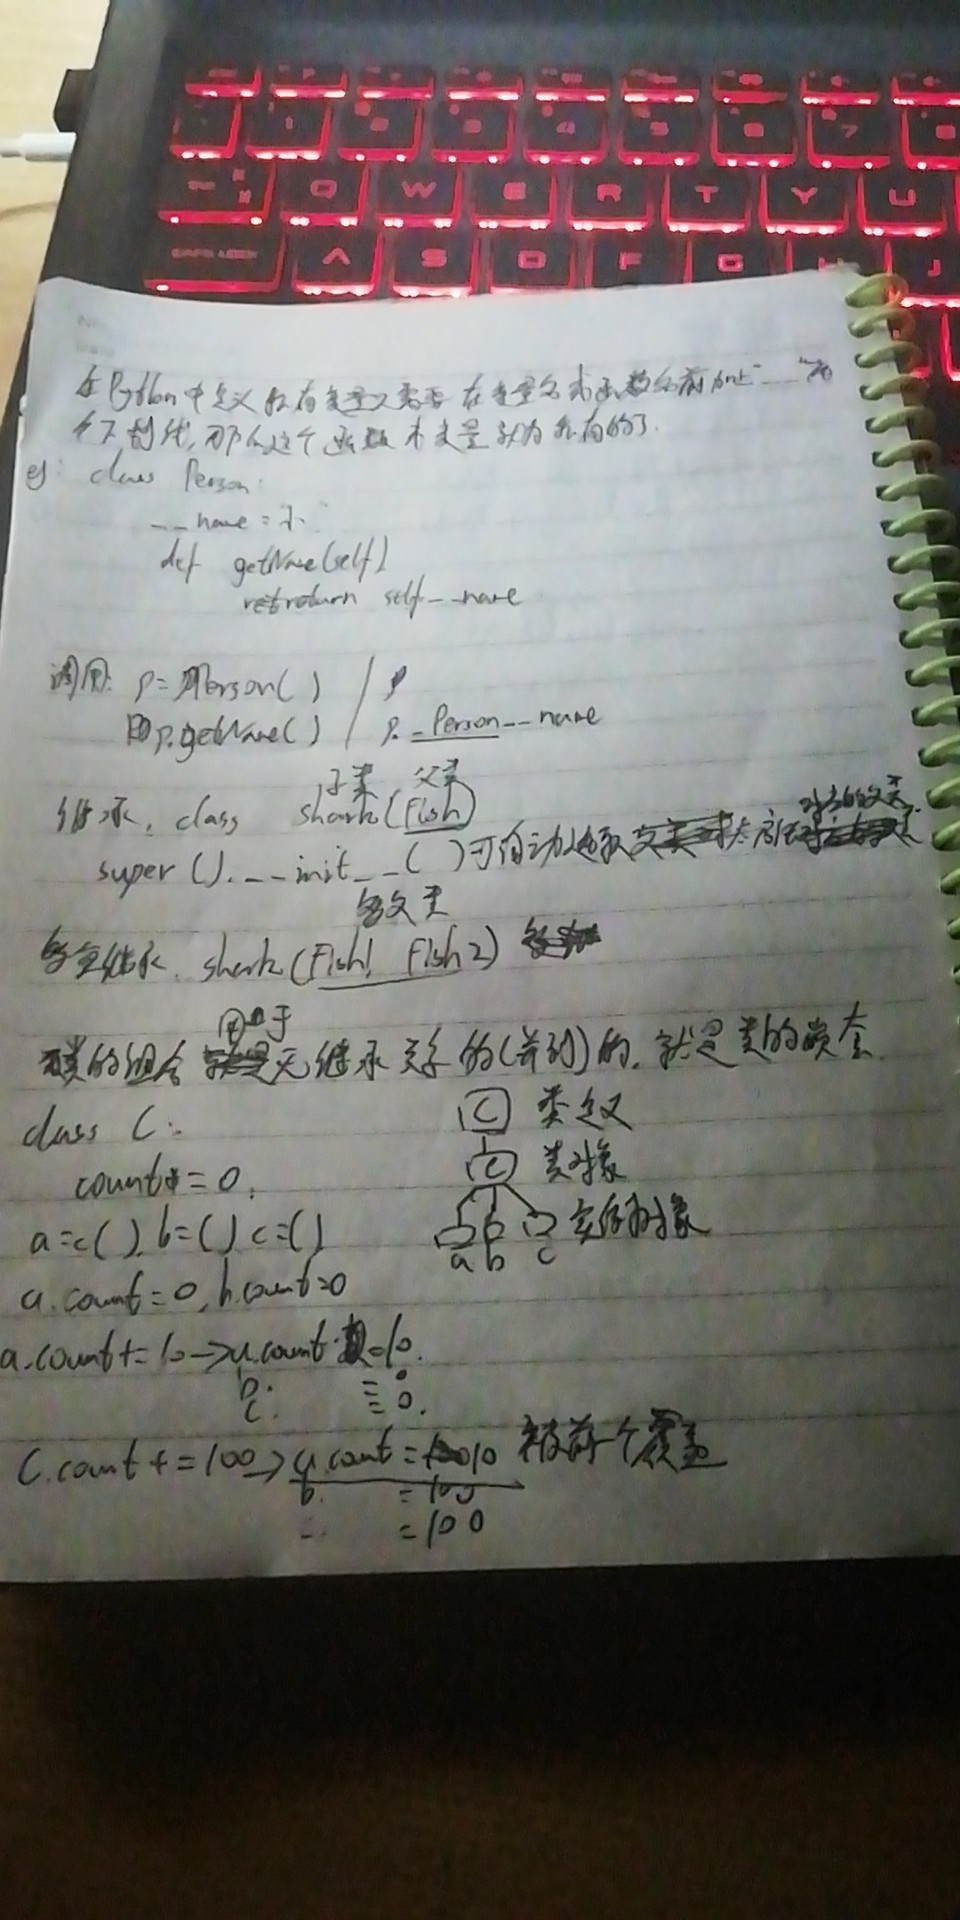 1 2 3 4 5 6 7 8
Q W E R T Y U
A S D F G H J
在Python中定义私有变量只需要在变量名或函数名前加上"__"两
个下划线,那么这个函数或变量就为私有的了.
eg: class Person:
__name =
def getName(self)
return self.__name
调用: p=Person() / p
p.getName() / p._Person__name
子类 父类
继承, class shark(Fish)
super().__init__()可自动
对应的父类
多父类
多重继承. shark(Fish1, Fish2)
用于
类的组合 无继承关系的(并列)的, 就是类的嵌套
class C: C 类定义
count = 0, C 类对象
a=c(), b=() c=() a b c 实例对象
a.count=0, b.count=0
a.count+=10→a.count =10.
b: =0
c: =0.
C.count+=100→a.count=10 被前一个覆盖
b. =100
=100